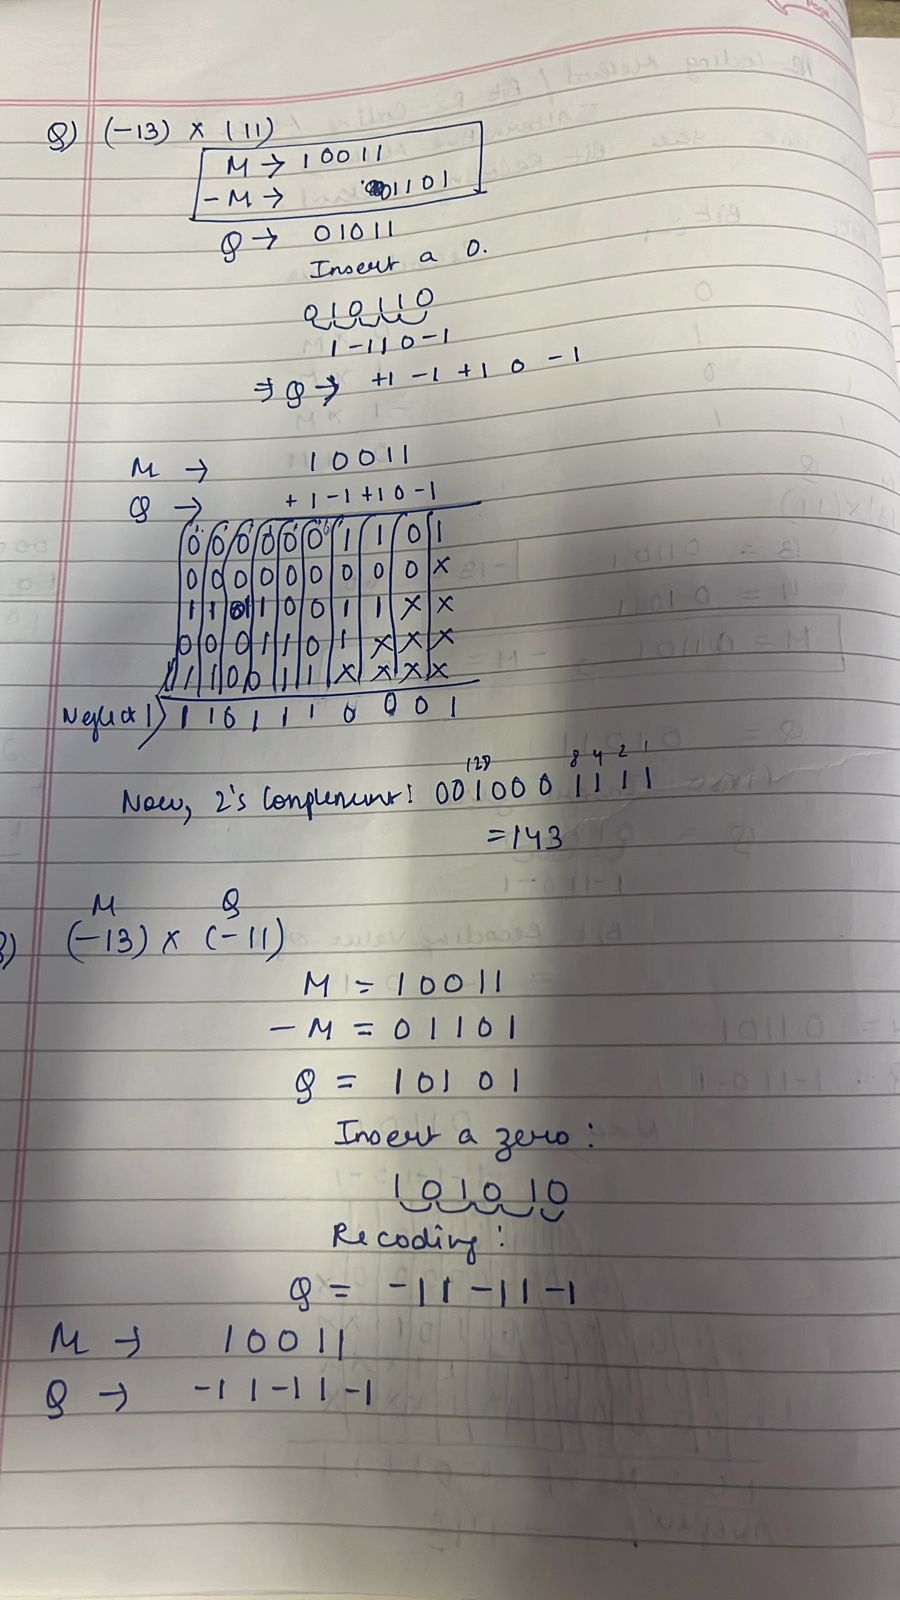 Q) (-13) x (11)
M → 10011
-M → 01101
Q → 01011
Insert a 0.
010110
1-110-1
⇒ Q → +1 -1 +1 0 -1
M → 10011
Q → +1-1+10-1
0 0 0 0 0 0 1 1 0 1
0 0 0 0 0 0 0 0 0 x
1 1 0 1 0 0 1 1 x x
0 0 0 1 1 0 1 x x x
1 1 0 0 1 1 x x x x
Neglect 1) 1 1 0 1 1 1 0 0 0 1
128 8 4 2 1
Now, 2's Complement: 0010001111
= 143
M Q
(-13) x (-11)
M = 10011
- M = 01101
Q = 10101
Insert a zero:
101010
Recoding:
Q = -11-11-1
M → 10011
Q → -11-11-1